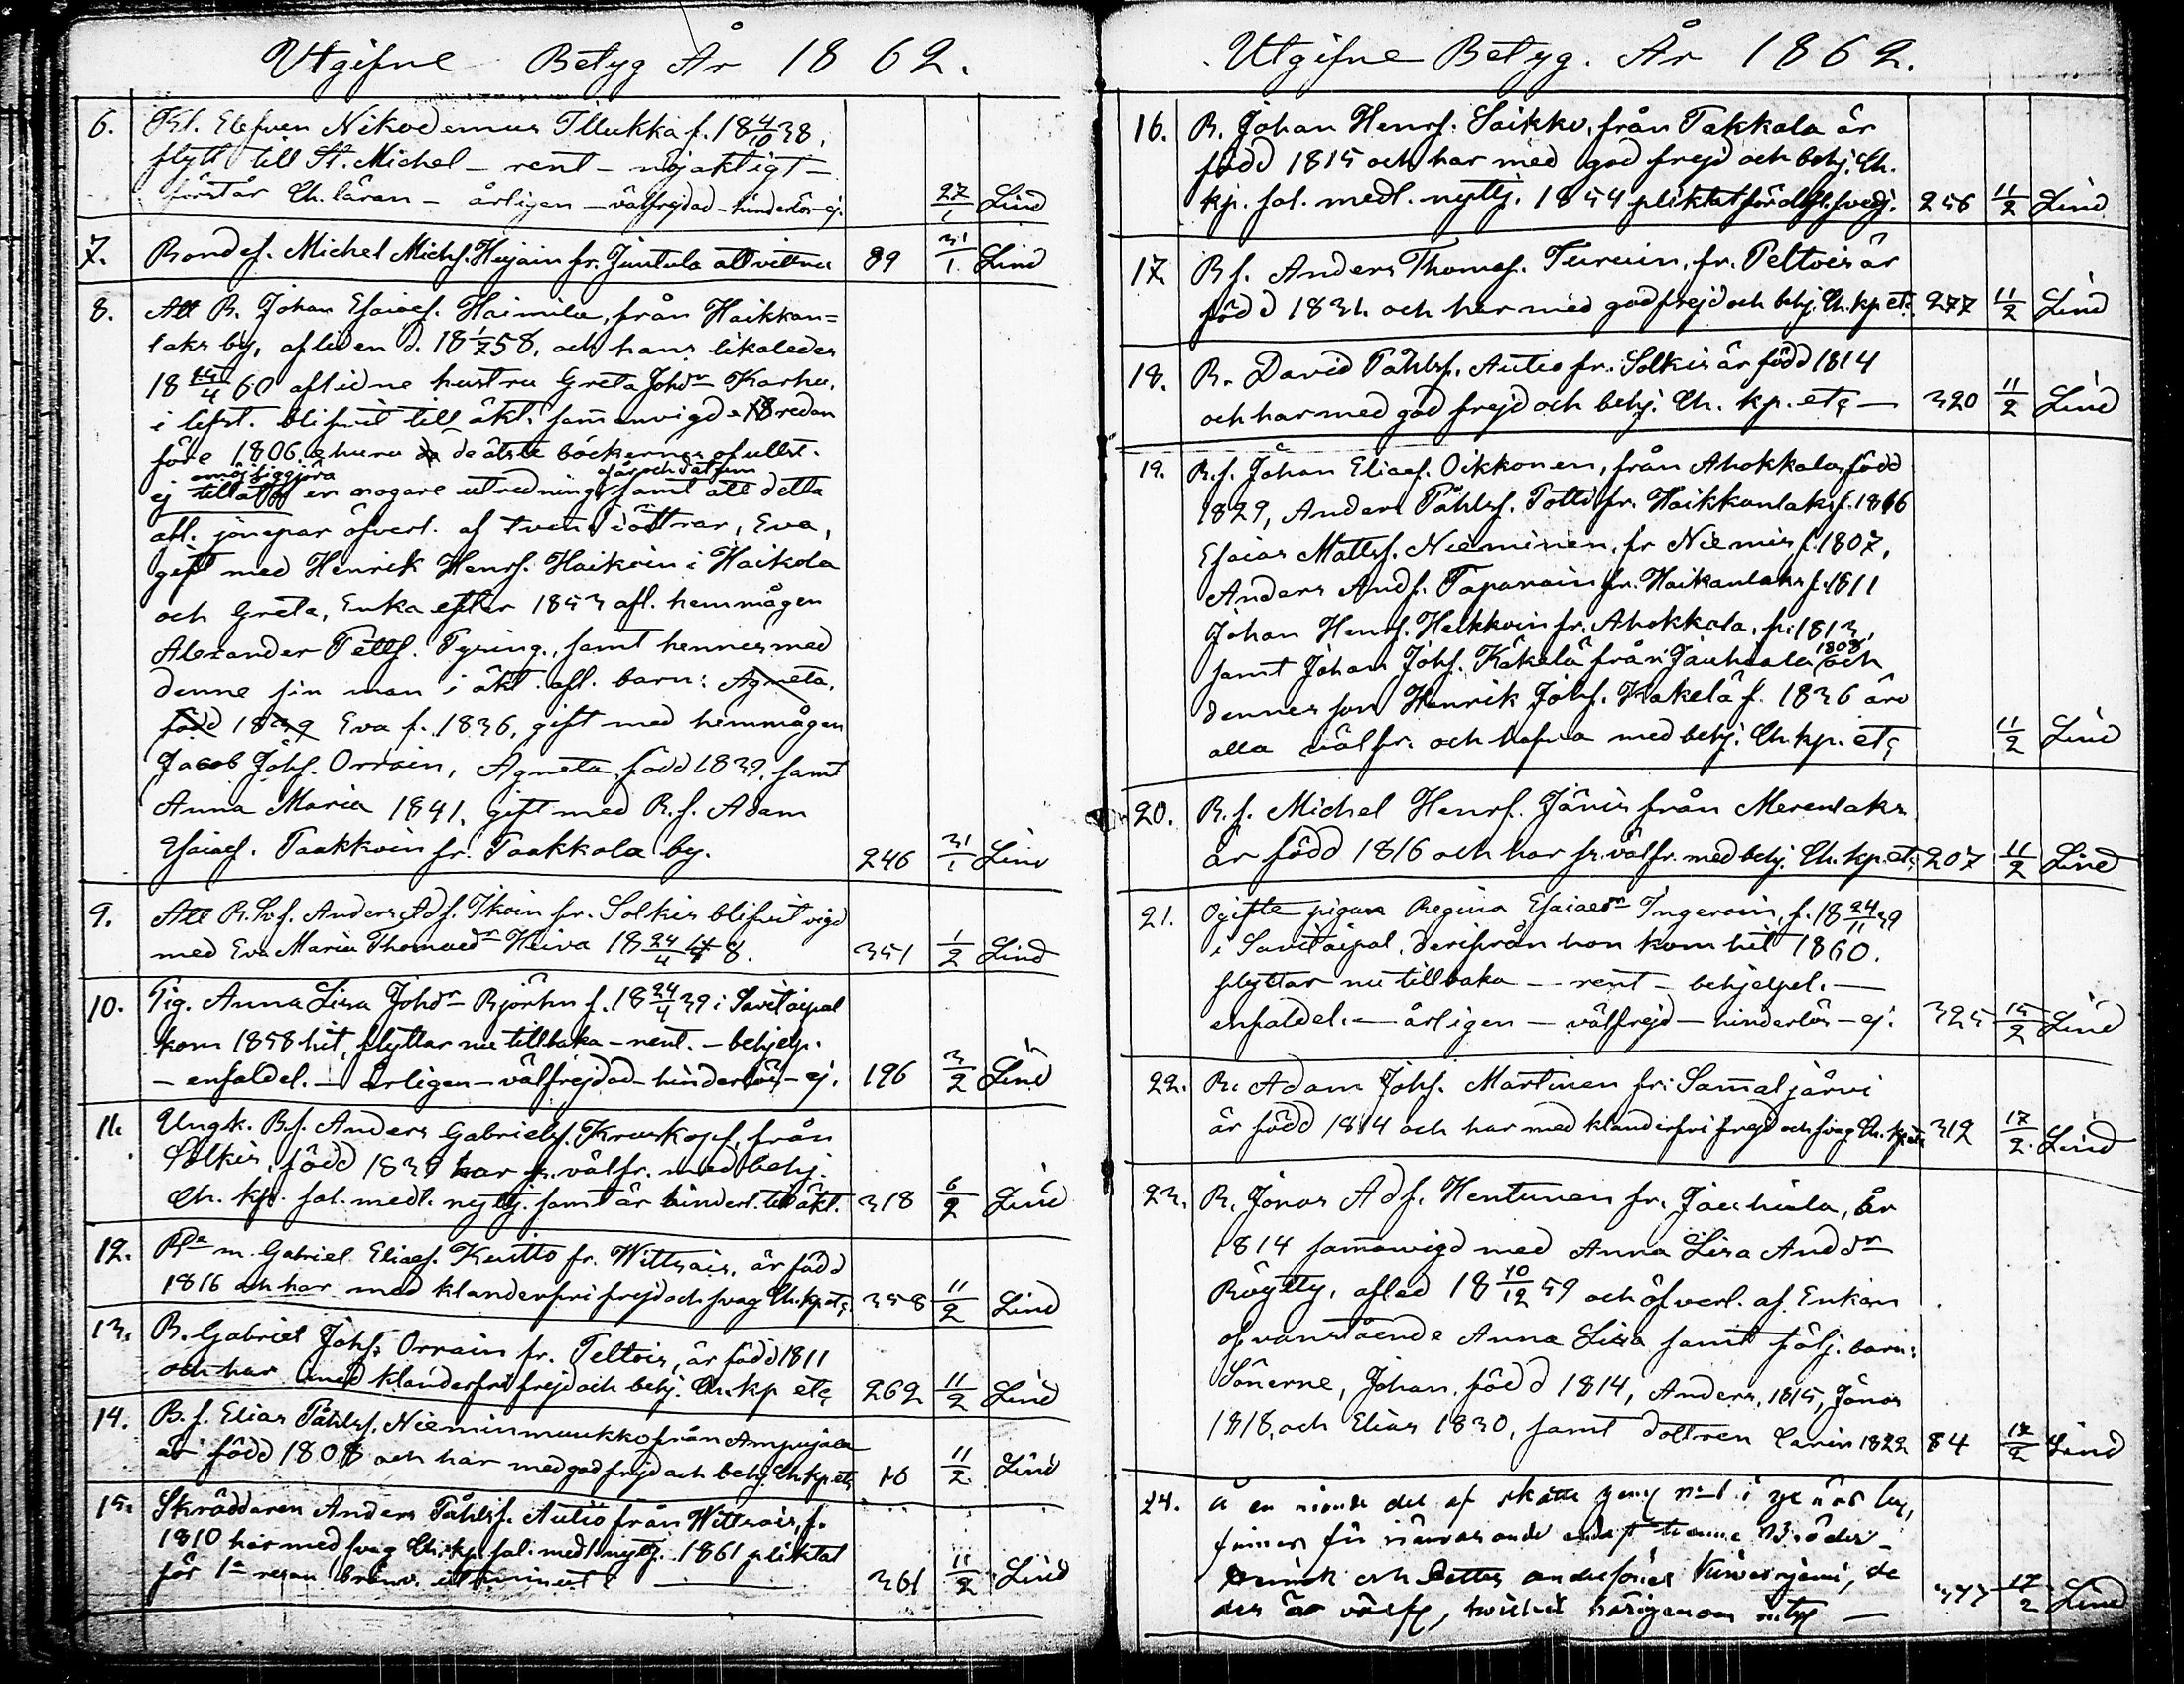 Utgifne Betyg År 1862.
6. Kl. Elefven Nikodemus Illukka f. 18 4/10 38.
flytt till St. Michel – rent – nöjaktigt –
förstår Ch. läran – årligen – välfrejdad – hinderlös – ej. 27/1 Lind
7. Bondes. Michel Michs. fr. Juntula att vittna 89 31/1 Lind
8. Att B. Johan Esaiaes. Haimila, från Haikkan=
laks by, afliden d. 18 1/7 58, och hans likaledes
18 60 aflidne hustru Greta Johdr Karhu,
i lifst. blifvit till äkt. samanvigde redan
före 1806, ehuru de äldste böckernes ofullst.
omöjliggjöra af år och datum
ej tillåta en nogare utredning samt att detta
afl. jonepar öfverl. af tvenne döttrar, Eva,
gift med Henrik Henrs. Haikoin i Haikola
och Greta, Enka efter 1853 afl. hemmågen
Alexander Petts. Pyring, samt hennes med
denne sin man i äkt. afl. barn: Agneta,
född 1839 Eva f. 1836, gift med hemmågen
Jacob Johs. Orrain, Agneta, född 1839, samt
Anna Maria 1841, gift med B. s. Adam
Esaiaes. Taakkoin fr. Taakkola by. 246 31/1 Lind
9. Att B. s. Anders Ads. Ikoin fr. Solkis blifvit vigd
med Eva Maria Thomaedr Hiiva 18 24/4 8. 351 1/2 Lind
10. Pig. Anna Lisa Johdr Björhn f. 18 24/4 39 i Savitaipal
kom 1858 hit, flyttar nu tillbaka – rent. – behjelp.
– enfaldel. – årligen – välfrejdad – hinderlös – ej. 196 3/2 Lind
11. Ungk. B.s. Anders Gabriels. Kruskopf, från
Solkis, född 1839 har fr. välfr. med behj.
Ch. kp. sal. medl. nyttj. samt är hinderl. till äkt. 318 6/2 Lind
12. m. Gabriel Eliaes. Kuitto fr. Wittsais, är född
1816 och har med klanderfri frejd och svag Ch. kp. etc 358 11/2 Lind
13. B. Gabriel Johs. Orrain fr. Peltois, är född 1811
och har med klanderfri frejd och behj. Ch. kp etc 262 11/2 Lind
14. B. s. Elias Påhls. Nieminmukko från Ampujala
är född 1808 och har med god frejd och behj. Ch. kp. etc 10 11/2 Lind
15. Skräddaren Anders Påhls. Autio från Wittsais, f.
1810 har med svag Ch. kp. sal. medl. nyttj. 1861 pliktat
för 1a resan bränv. 361 11/2 Lind
Utgifne Betyg. År 1862.
16. B. Johan Henrs. Saikko, från Takkala är
född 1815 och har med god frejd och behj. Ch.
kp. sal. medl. nyttj. 1854 pliktat för svedj. 256 11/2 Lind
17. B s. Anders Thomaes. Turuin, fr. Peltois är
född 1831 och har med god frejd och behj. Ch. kp etc. 277 11/2 Lind
18. B. David Påhls. Autio fr. Solkis är född 1814
och har med god frejd och behj. Ch. kp. etc – 320 11/2 Lind
19. B.s. Johan Eliaes. Oikkonen, från Ahokkala, född
1829, Anders Påhls. Potti fr. Haikkanlaks f. 1816
Esaias Matts. Nieminen, fr Niemis f. 1807,
Anders Ands. Taparain fr. Haikanlaks f. 1811
Johan Henrs. Heikkoin fr. Ahokkala, f. 1813,
samt Johan Johs. Käkelä från Jauhiala 1808 och
dennes son Henrik Johs. Kakelä f. 1836 äro
alla välfr. och hafva med behj. Ch. kp. etc 11/2 Lind
20. B. s. Michel Henrs. Jänis från Merenlaks
är född 1816 och har fr. välfr. med behj. Ch. kp. etc 207 11/2 Lind
21. Ogifte pigan Regina Esaiaedr Ingeroin, f. 18 24/11 39
i Savitaipal, derifrån hon kom hit 1860.
flyttar nu tillbaka – rent – behjelpel. –
enfaldel. – årligen – välfrejd – hinderlös – ej. 325 15/2 Lind
22. B. Adam Johs. Martinen fr. Samaljärvi
är född 1814 och har med klanderfri frejd och svag Ch. kp etc 312 17/2 Lind
23. B. Jonas Ads. Hentunen fr. Jauhiala, är
1814 samanvigd med Anna Lisa Anddr
Röytty, afled 18 10/12 59 och öfverl. af Enkan
ofvanstående Anna Lisa samt följ. barn:
Sönerne, Johan, född 1814, Anders, 1815, Jonas
1818, och Elias 1830, samt dottren Carin 1822 84 17/2 Lind
24. en del af skatte nr 1 i by,
finnes för närvarande endast tvenne Bröder
och Petter , de
der är välfr, hvilket härigenom intyg – 17/2 Lind